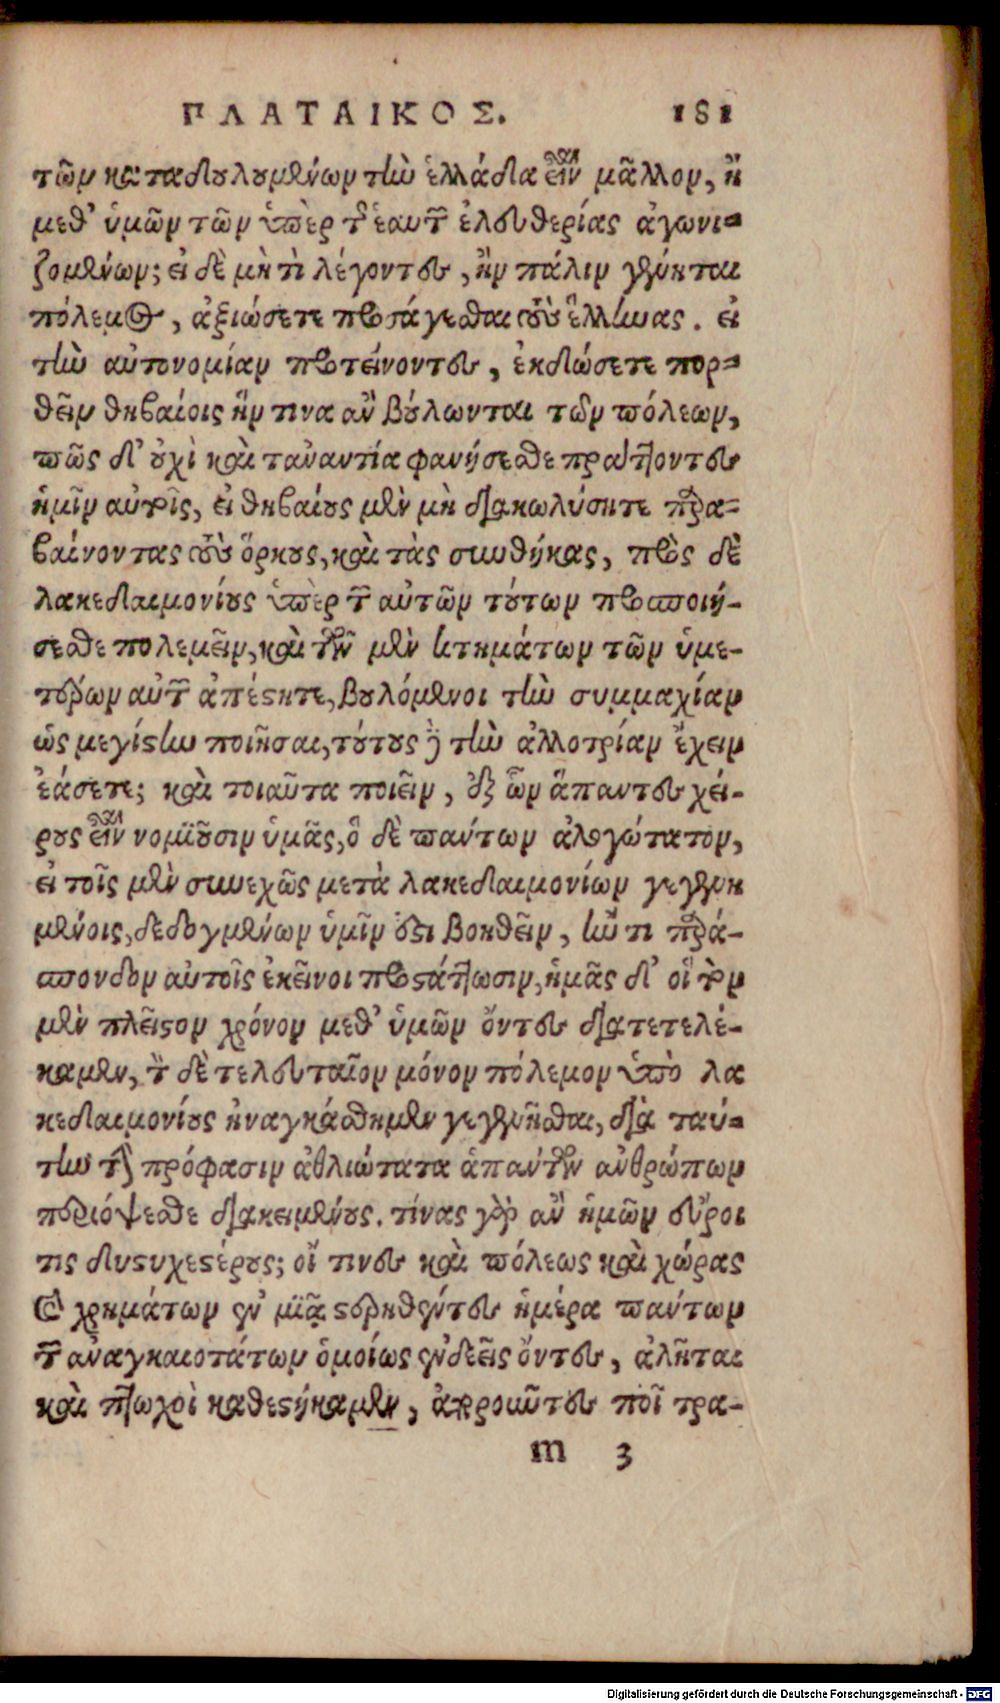 ΠΛΑΤΑΙΚΟΣ. 181
τῶν καταδουλουμένων τὴν ἑλλάδα εἶναι μᾶλλον, ἢ
μεθ' ὑμῶν τῶν ὑπὲρ τῆς ἑαυτῶν ἐλευθερίας ἀγωνι-
ζομένων; εἰ δὲ μὴ τὶ λέγοντες, ἢν πάλιν γένηται
πόλεμος, ἀξιώσετε προσάγεσθαι τοὺς ἕλληνας. εἰ
τὴν αὐτονομίαν προτείνοντες, ἐκδώσετε πορ-
θεῖν θηβαίοις ἥν τινα ἂν βούλωνται τῶν πόλεων,
πῶς δ' οὐχὶ καὶ ταναντία φανήσεσθε πράττοντες
ἡμῖν αὐτοῖς, εἰ θηβαίους μὲν μὴ διακωλύσητε παρα-
βαίνοντας τοὺς ὅρκους, καὶ τὰς συνθήκας, πρὸς δὲ
λακεδαιμονίους ὑπὲρ τῶν αὐτῶν τούτων προσποιή-
σεσθε πολεμεῖν, καὶ τῶν μὲν κτημάτων τῶν ὑμε-
τέρων αὐτῶν ἀπέστητε, βουλόμενοι τὴν συμμαχίαν
ὡς μεγίστην ποιῆσαι, τούτους δὲ τὴν ἀλλοτρίαν ἔχειν
ἐάσετε; καὶ τοιαῦτα ποιεῖν, ἐξ ὧν ἅπαντες χεί-
ρους εἶναι νομιοῦσιν ὑμᾶς, ὃ δὲ πάντων ἀλογώτατον,
εἰ τοῖς μὲν συνεχῶς μετὰ λακεδαιμονίων γεγενη
μένοις, δεδογμένων ὑμῖν ἐστι βοηθεῖν, ἤν τι παρά-
σπονδον αὐτοῖς ἐκεῖνοι προστάττωσιν, ἡμᾶς δ' οἳ τὸν
μὲν πλεῖστον χρόνον μεθ' ὑμῶν ὄντες διατετελέ-
καμεν, τὸν δὲ τελευταῖον μόνον πόλεμον ὑπὸ λα
κεδαιμονίους ἠναγκάσθημεν γεγενῆσθαι, διὰ ταύ-
την τὴν πρόφασιν ἀθλιώτατα ἁπάντων ἀνθρώπων
περιόψεσθε διακειμένους. τίνας γὰρ ἂν ἡμῶν εὕροι
τις δυστυχεστέρους; οἵ τινες καὶ πόλεως καὶ χώρας
καὶ χρημάτων ἐν μιᾷ στερηθέντες ἡμέρα πάντων
τῶν ἀναγκαιοτάτων ὁμοίως ἐνδεεῖς ὄντες, ἀλῆται
καὶ πτωχοὶ καθεστήκαμεν, ἀποροῦντες ποῖ τρα-
m 3
Digitalisierung gefördert durch die Deutsche Forschungsgemeinschaft - DFG